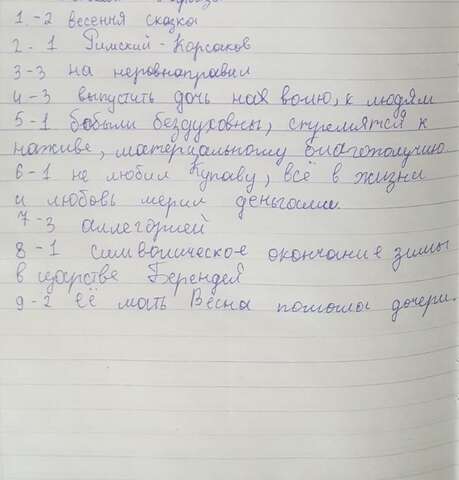 1 - 2 весення сказка
2 - 1 Римский - Корсаков
3 - 3 на неровнаправил
4 - 3 выпустить дочь ная волю, к людям
5 - 1 бобыли бездуховны, стремятся к
наживе, материальному благополучию
6 - 1 не любил Купаву, всё в жизни
и любовь мерил деньгами.
7 - 3 аллегорией
8 - 1 символическое окончание зимы
в царстве Берендея
9 - 2 её мать Весна помогла дочери.